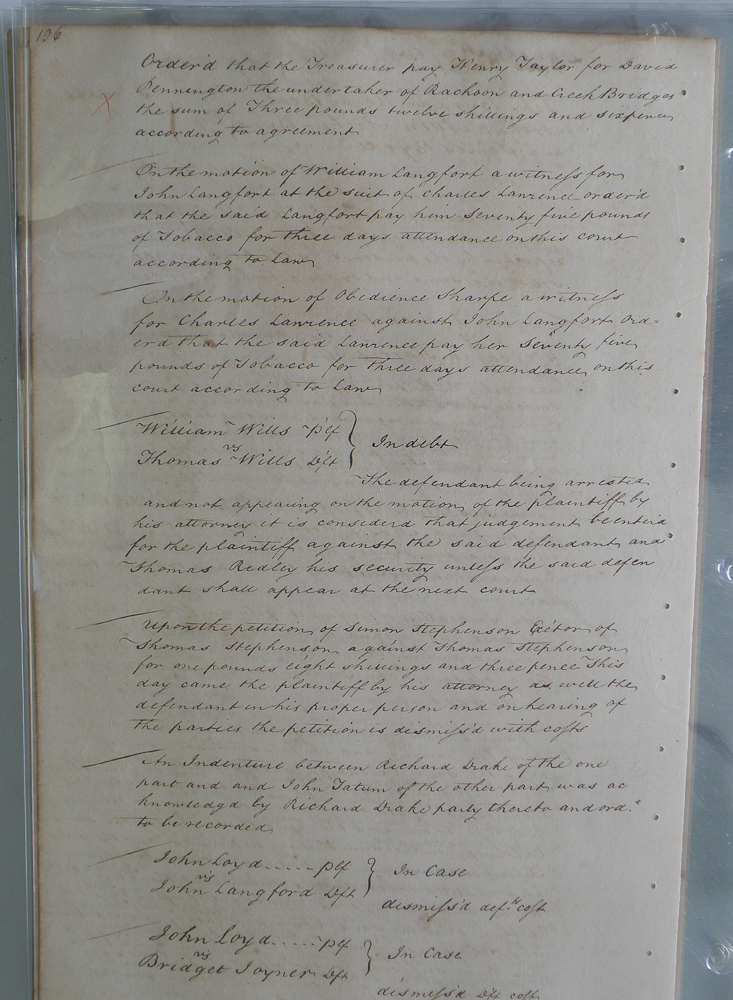 106
Order'd that the Treasurer pay Henry Taylor for David
Pennington the undertaker of Rachoon and Creek Bridges
the sum of Three pounds twelve shillings and sixpence
according to agreement
On the motion of William Langfort a witness for
John Langfort at the suit of Charles Lawrence order'd
that the said Langfort pay him Seventy five pounds
of Tobacco for three days attendance on this court
according to Law
On the motion of Obedience Sharpe a witness
for Charles Lawrence against John Langfort ord-
erd that the said Lawrence pay her Seventy five
pounds of Tobacco for three days attendance on this
court according to Law
William Wills Plf
vs
Thomas Wills Dft
In debt
The defendant being arrested
and not appearing on the motion of the plaintiff by
his attorney it is considerd that judgement be enterd
for the plaintiff against the said defendant and
Thomas Redley his security unless the said defen
dant shall appear at the next court
Upon the petition of Simon Stephenson Exétor of
Thomas Stephenson against Thomas Stephenson
for one pounds eight shillings and three pence This
day came the plaintiff by his attorney as well the
defendant in his proper person and on hearing of
the parties the petition is dismiss'd with costs
An Indenture between Richard Drake of the one
part and and John Tatum of the other part was ac
knowledgd by Richard Drake party thereto and ord.d
to be recorded
John Loyd ..... plf
vs
John Langford Dft
In Case
dismiss'd def.ts cost
John Loyd ..... plf
vs
Bridget Joyner Dft
In Case
dismiss'd Dft cost